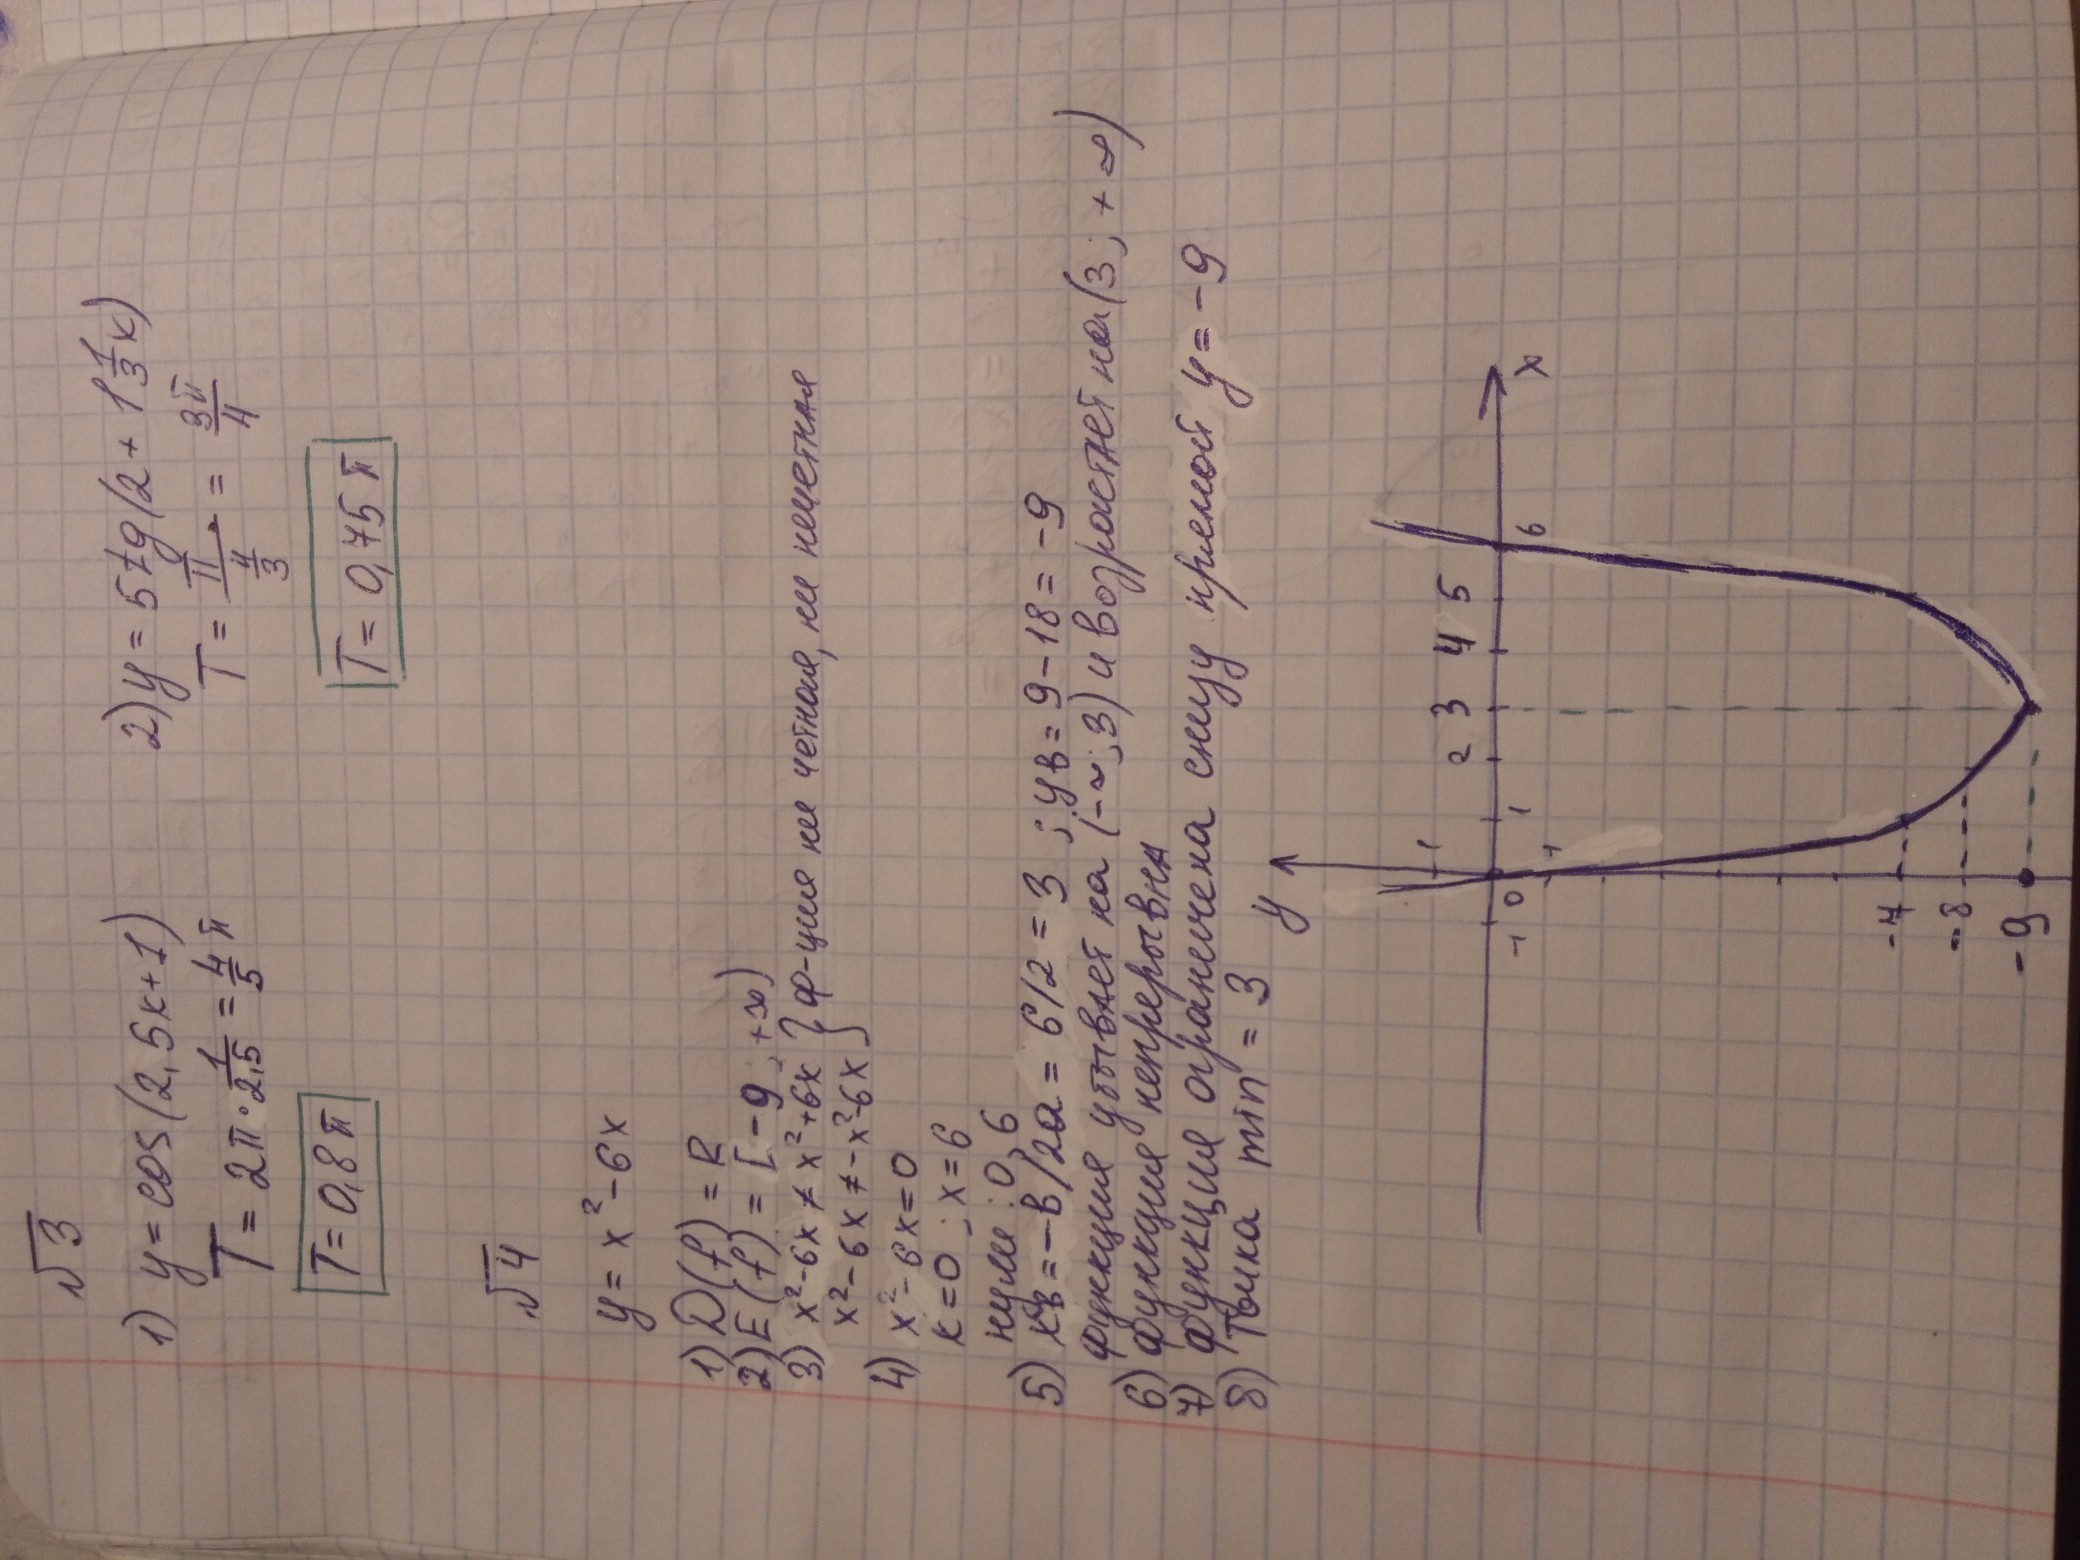 √3
1) y = cos(2,5x+1)
T = 2π · 1/2,5 = 4/5 π
T = 0,8π
2) y = 5tg(2 + 1 1/3 x)
T = π / 4/3 = 3π/4
T = 0,75π
√4
y = x² - 6x
1) D(f) = R
2) E(f) = [-9 ; +∞)
3) x² - 6x ≠ x² + 6x } ф-ция не четная, не нечетная
x² - 6x ≠ - x² - 6x
4) x² - 6x = 0
x = 0 ; x = 6
нули : 0, 6
5) xв = -в/2а = 6/2 = 3 ; yв = 9 - 18 = -9
функция убывает на (-∞; 3) и возрастает на (3; +∞)
6) функция непрерывна
7) функция ограничена снизу прямой y = -9
8) точка min = 3
y
x
-1 0 1 2 3 4 5 6
1
-1
-7
-8
-9